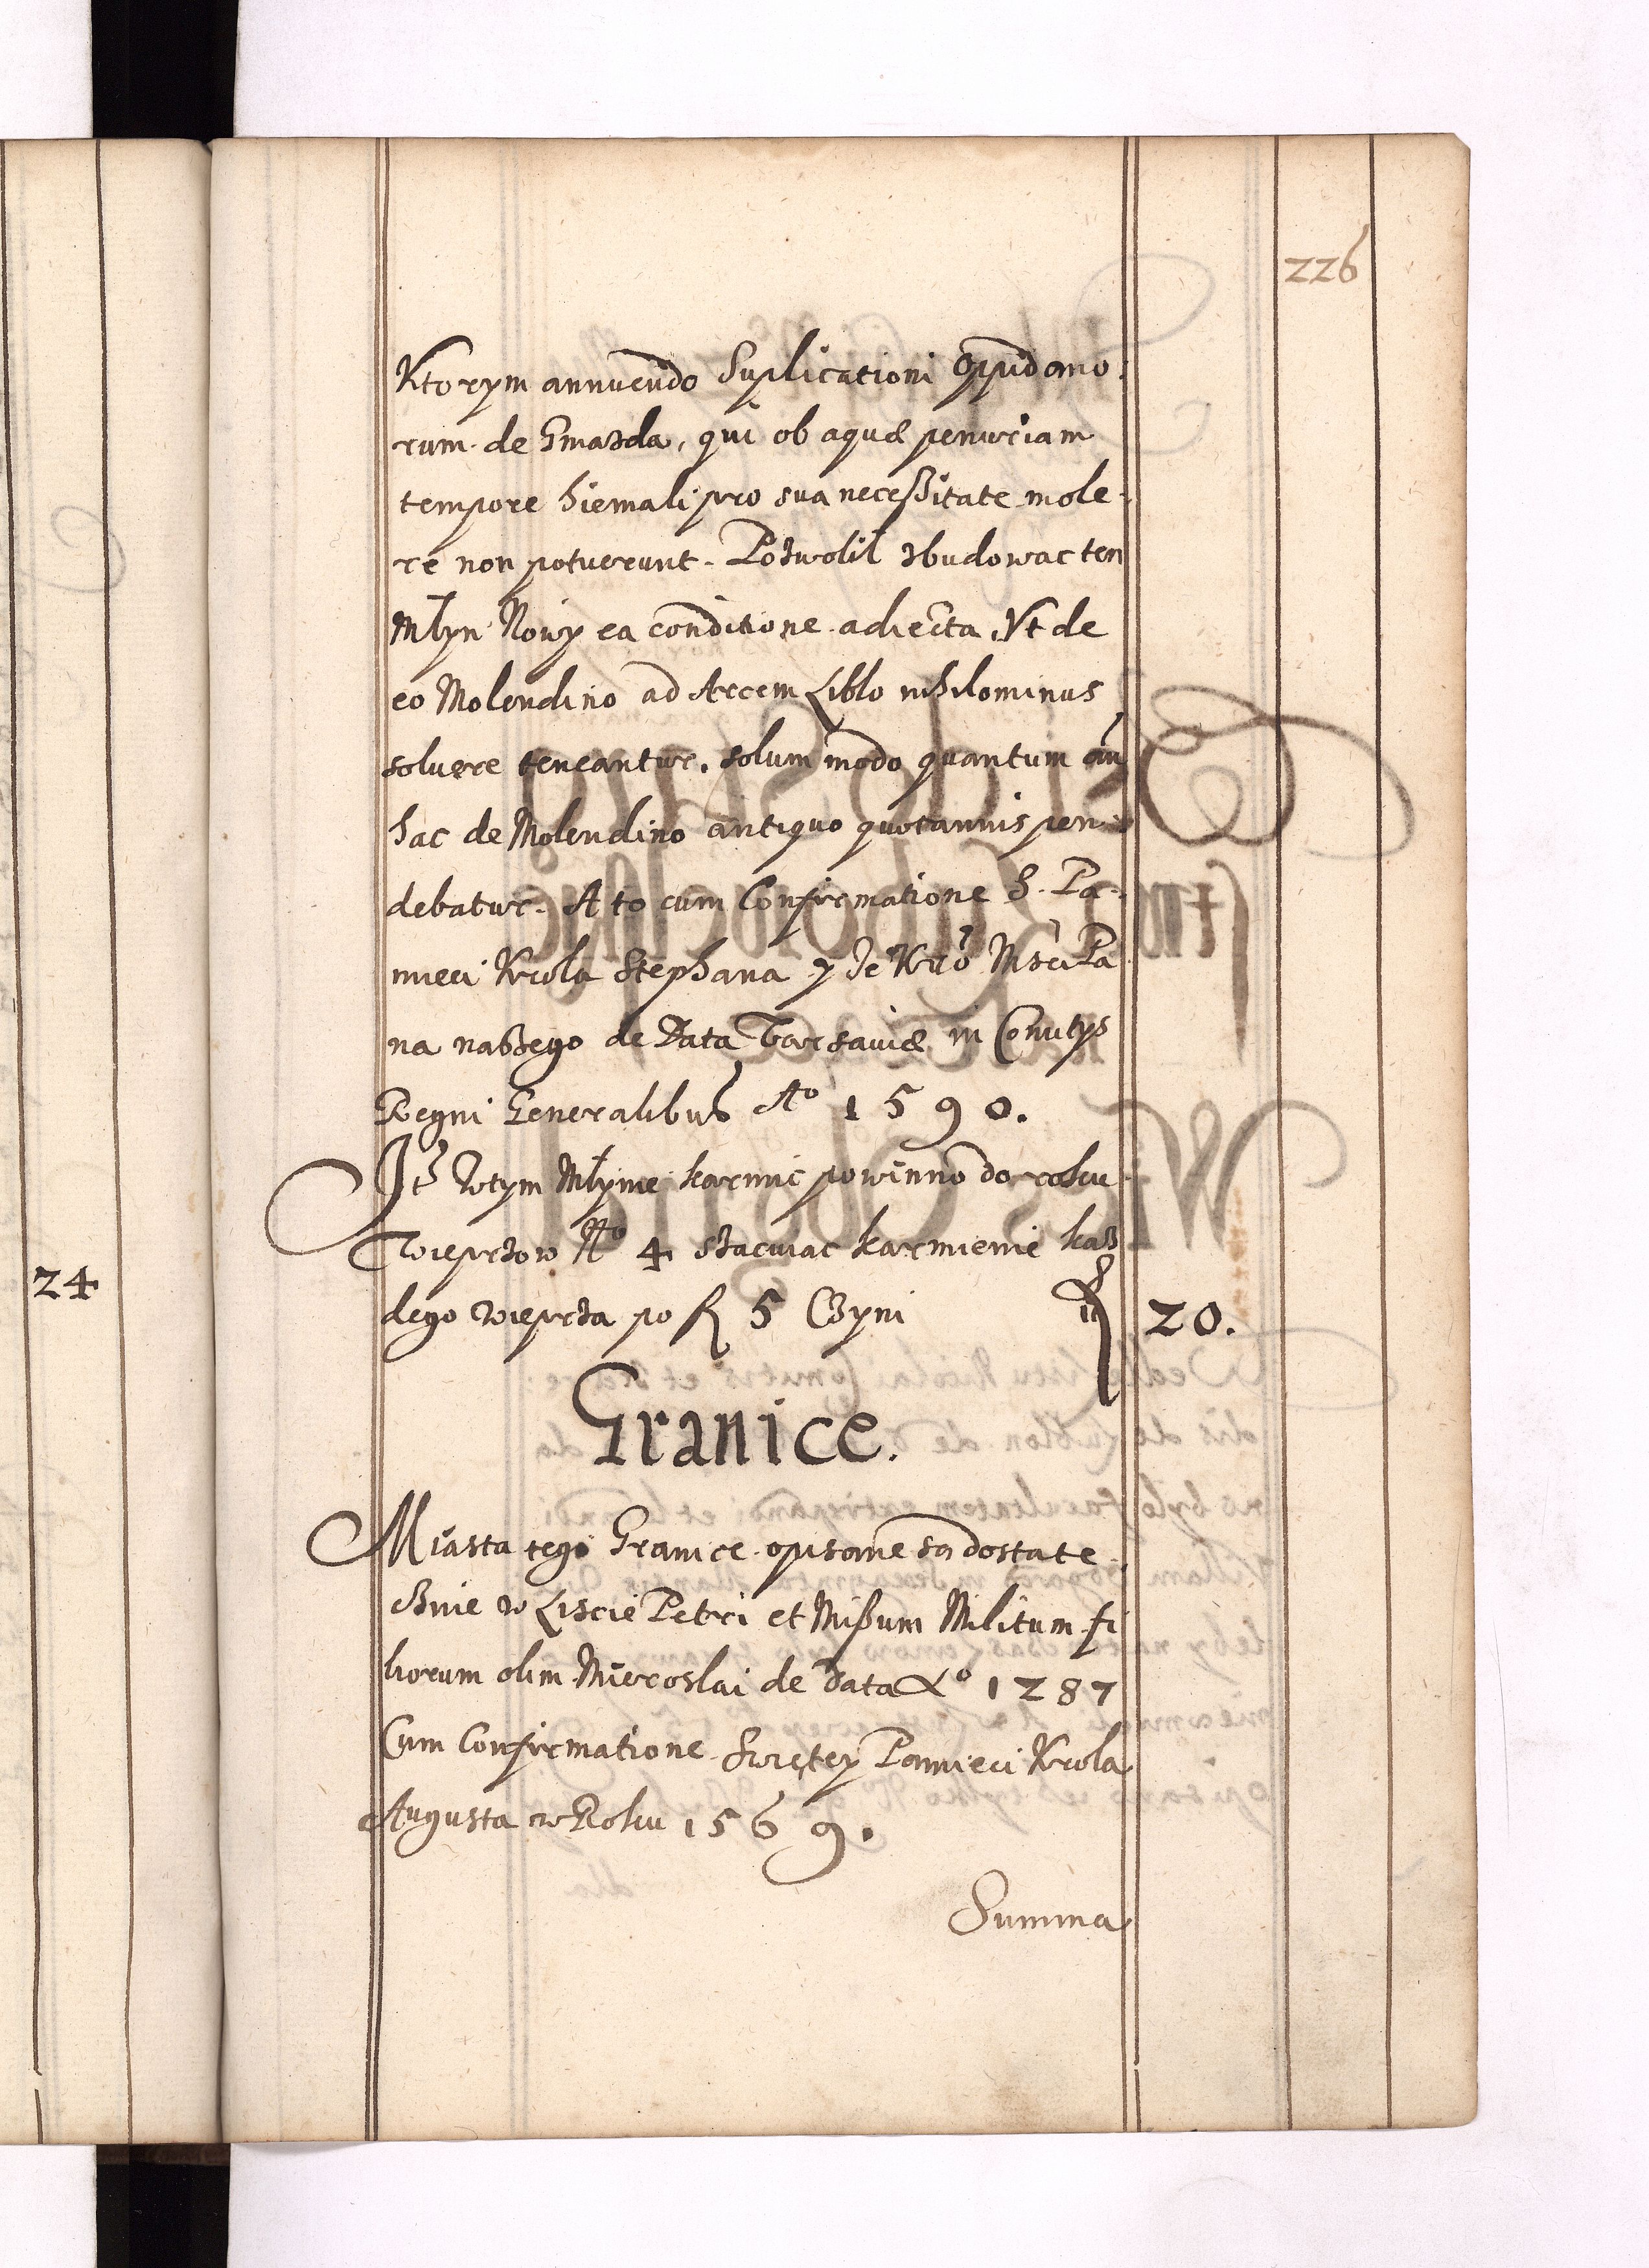 226
Ktorym annuendo Suplicationi Oppidano:
rum de Gniazda, qui ob aquæ penuriam
tempore hiemali pro sua neceßitate mole:
re non potuerunt. Pozwolił zbudowac ten
Młyn Nowy ea conditione adiecta, Vt de
eo Molendino ad Arcem Liblo nihilominus
soluere teneantur, solum modo quantum an
hac de Molendino antiquo quotannis pen
debatur. A to cum Confirmatione S. Pa:
mieci Krola Stephana y Je° Kró Msci Pa
na naßego de Data Varsaviæ in Comitys
Regni Generalibus A° 1590.
Jt Wtym Młynie karmic powinno do roku
Wieprzow N° 4 szacuiac karmienie kaz
dego wieprza po fl 5 Czyni
fl 20.
Granice.
Miasta tego Granice opisane sa dostate:
cznie w Liscie Petri et Mißum Militum fi
liorum olim Mieroslai de Data A° 1287
Cum Confirmatione Swiętey Pamieci Krola
Augusta w Roku 1569.
Summa
24